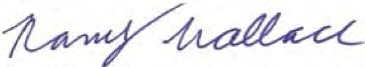 Nancy Wallace